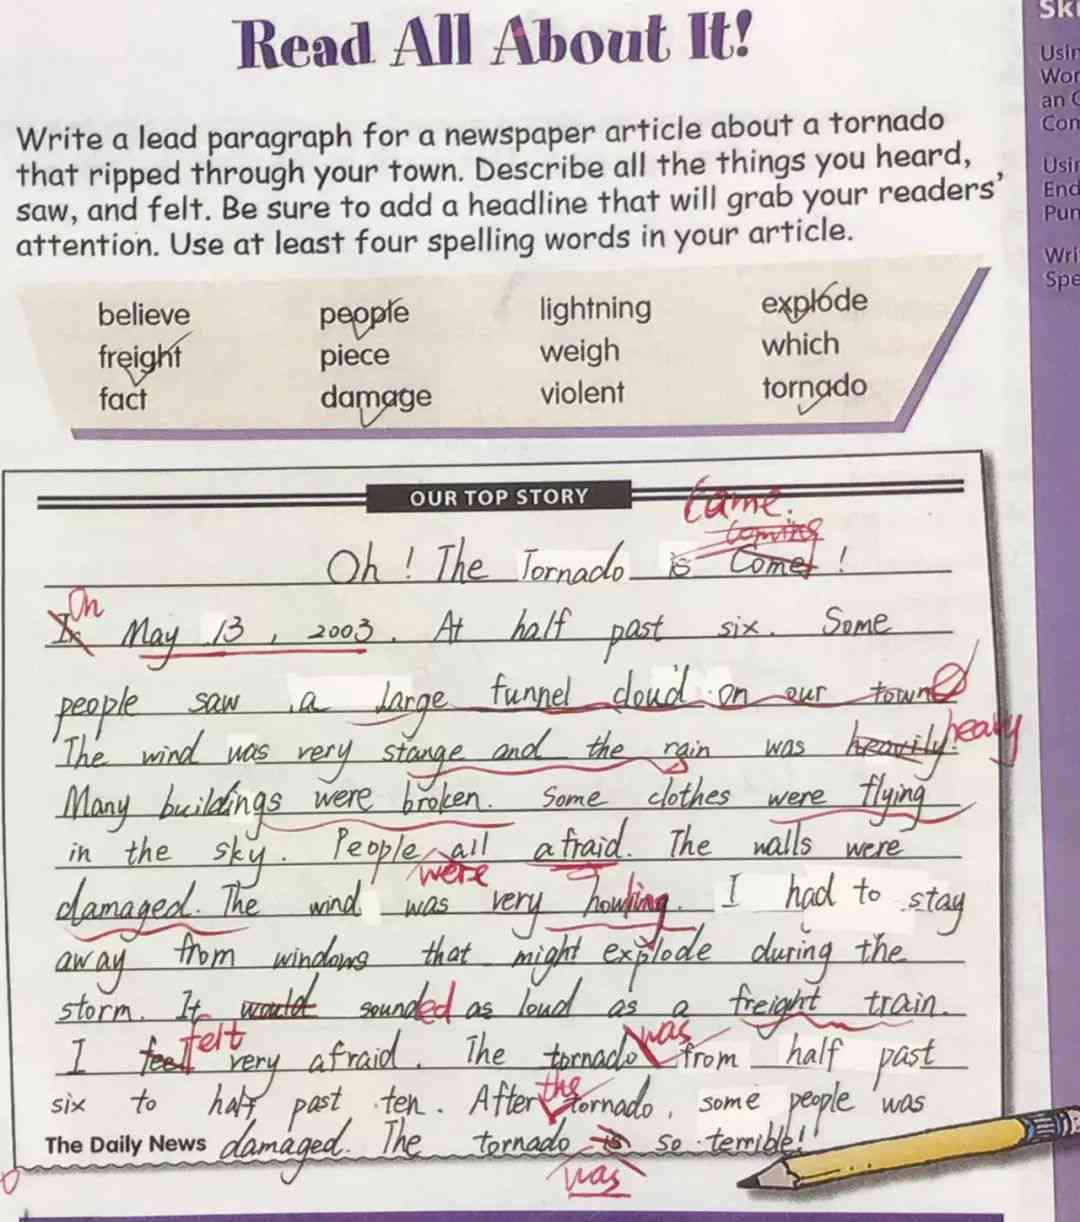 Read All About It!
Ski
Write a lead paragraph for a newspaper article about a tornado
that ripped through your town. Describe all the things you heard,
saw, and felt. Be sure to add a headline that will grab your readers'
attention. Use at least four spelling words in your article.
Usin
Wor
an C
Con
Usin
End
Pun
Wri
Spe
believe people lightning explode
freight piece weigh which
fact damage violent tornado
OUR TOP STORY
Came.
coming
Oh ! The Tornado is Comes !
On
In May 13 , 2003 . At half past six. Some
people saw a large funnel cloud on our town
The wind was very stange and the rain was heavily. heavy
Many buildings were broken. Some clothes were flying
in the sky. People all afraid. The walls were
were
damaged. The wind was very howling. I had to stay
away from windows that might explode during the
storm. It would sounded as loud as a freight train.
felt was
I feel very afraid. The tornado from half past
the
six to half past ten. After tornado, some people was
The Daily News damaged. The tornado is so terrible!
was